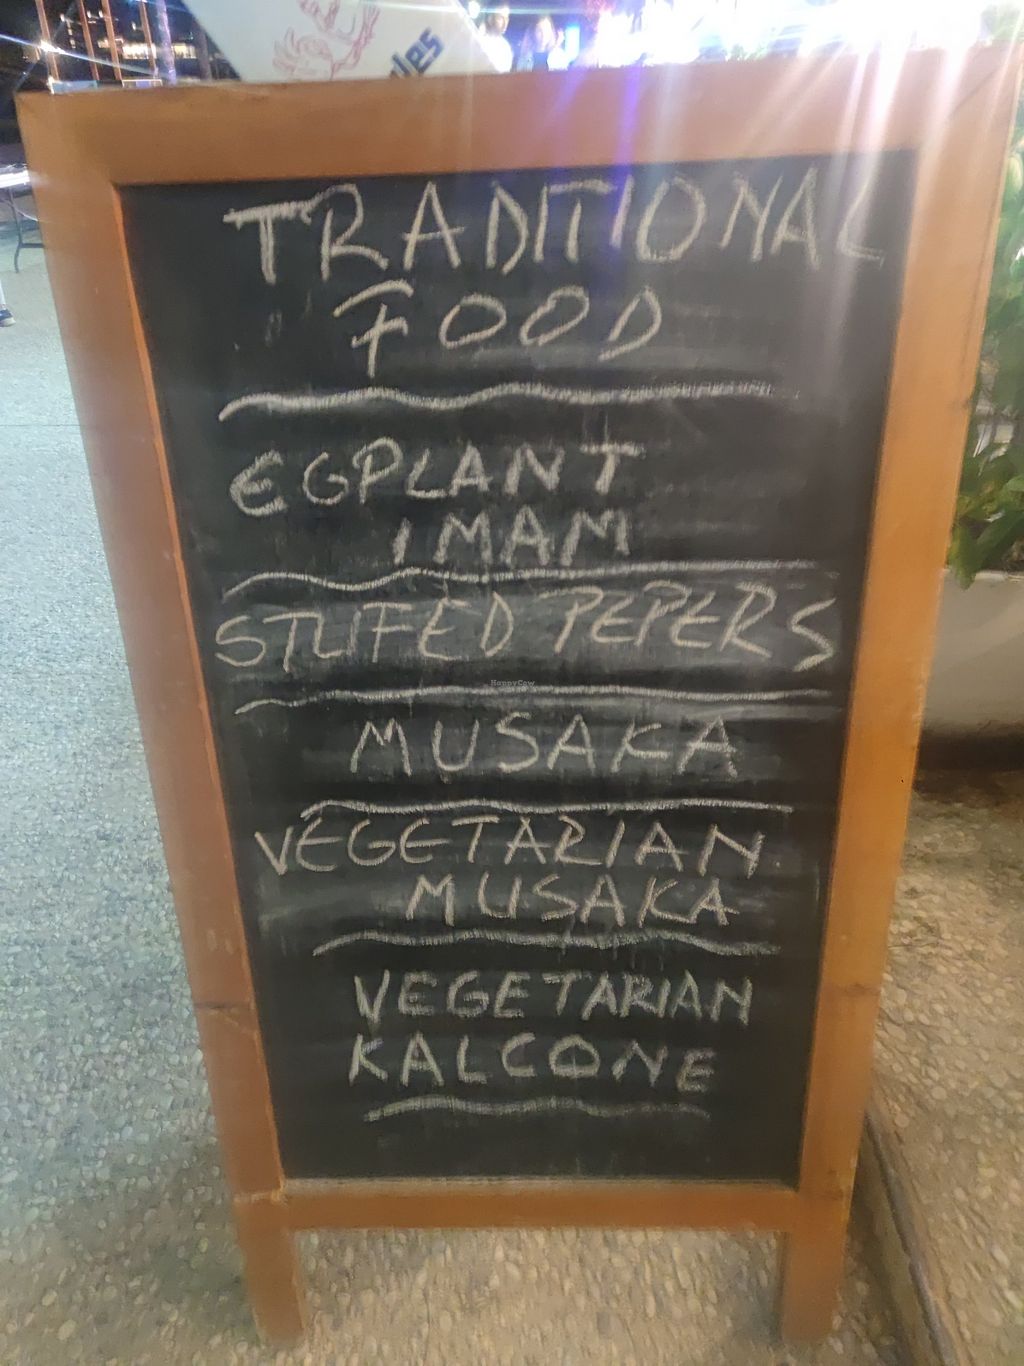 les
TRADITIONAL
FOOD
EGPLANT
IMAM
STUFED PEPERS
HappyCow
MUSAKA
VEGETARIAN
MUSAKA
VEGETARIAN
KALCONE